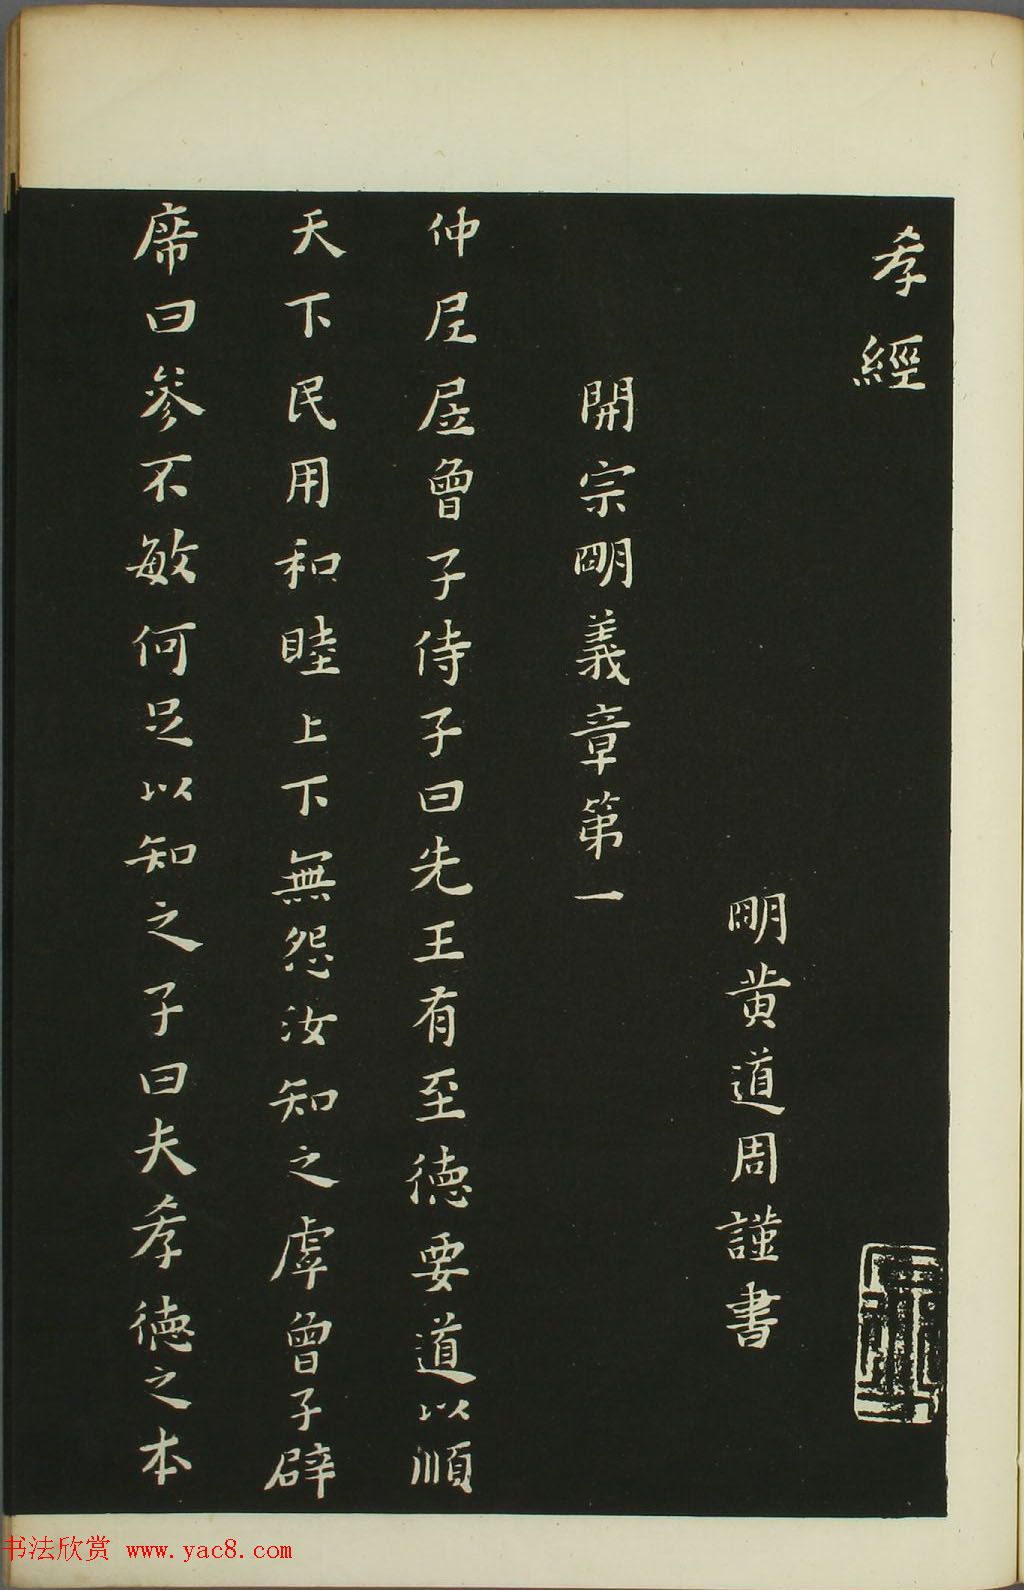 孝經
明黃道周謹書
開宗明義章第一
仲尼凥曾子侍子曰先王有至德要道以順
天下民用和睦上下無怨汝知之虖曾子辟
席曰參不敏何足以知之子曰夫孝德之本
书法欣赏 www.yac8.com